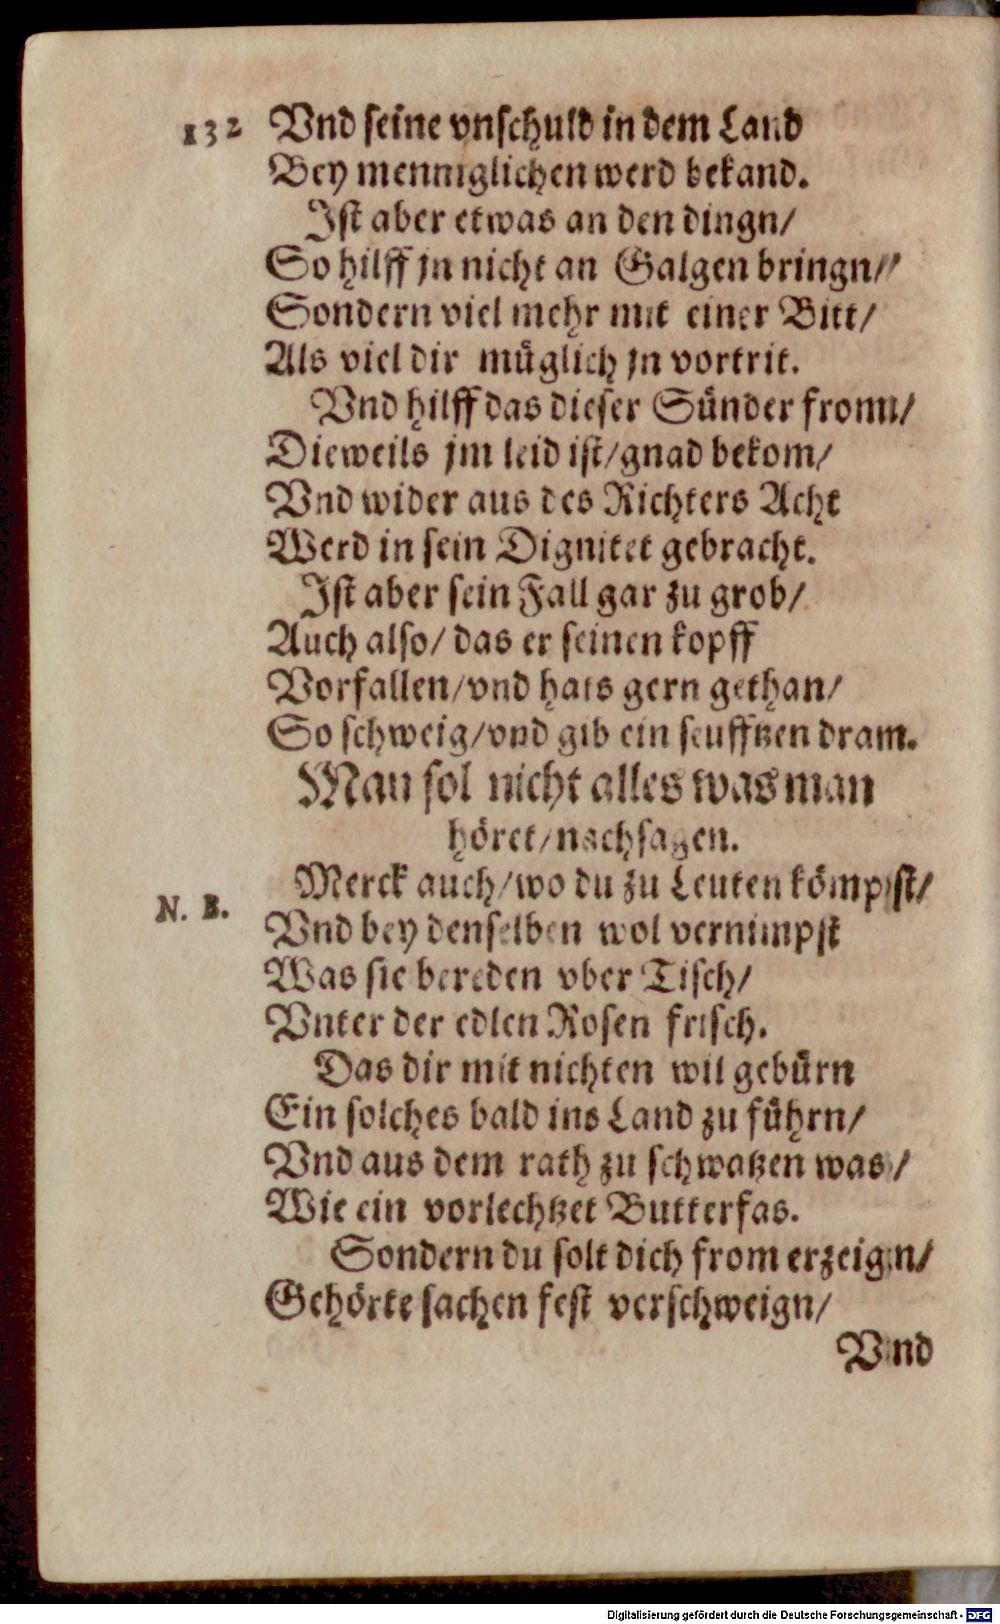 132 Vnd seine vnschuld in dem Land
Bey menniglichen werd bekand.
Ist aber etwas an den dingn/
So hilff jn nicht an Galgen bringn/
Sondern viel mehr mit einer Bitt/
Als viel dir müglich jn vortrit.
Vnd hilff das dieser Sünder from/
Dieweils jm leid ist/gnad bekom/
Vnd wider aus des Richters Acht
Werd in sein Dignitet gebracht.
Ist aber sein Fall gar zu grob/
Auch also/ das er seinen kopff
Vorfallen/vnd hats gern gethan/
So schweig/vnd gib ein seufftzen dram.
Man sol nicht alles was man
höret/nachsagen.
Merck auch/wo du zu Leuten kömpst/
N. B. Vnd bey denselben wol vernimpst
Was sie bereden vber Tisch/
Vnter der edlen Rosen frisch.
Das dir mit nichten wil gebürn
Ein solches bald ins Land zu führn/
Vnd aus dem rath zu schwatzen was/
Wie ein vorlechtzet Butterfas.
Sondern du solt dich from erzeign/
Gehörte sachen fest verschweign/
Vnd
Digitalisierung gefördert durch die Deutsche Forschungsgemeinschaft - DFG